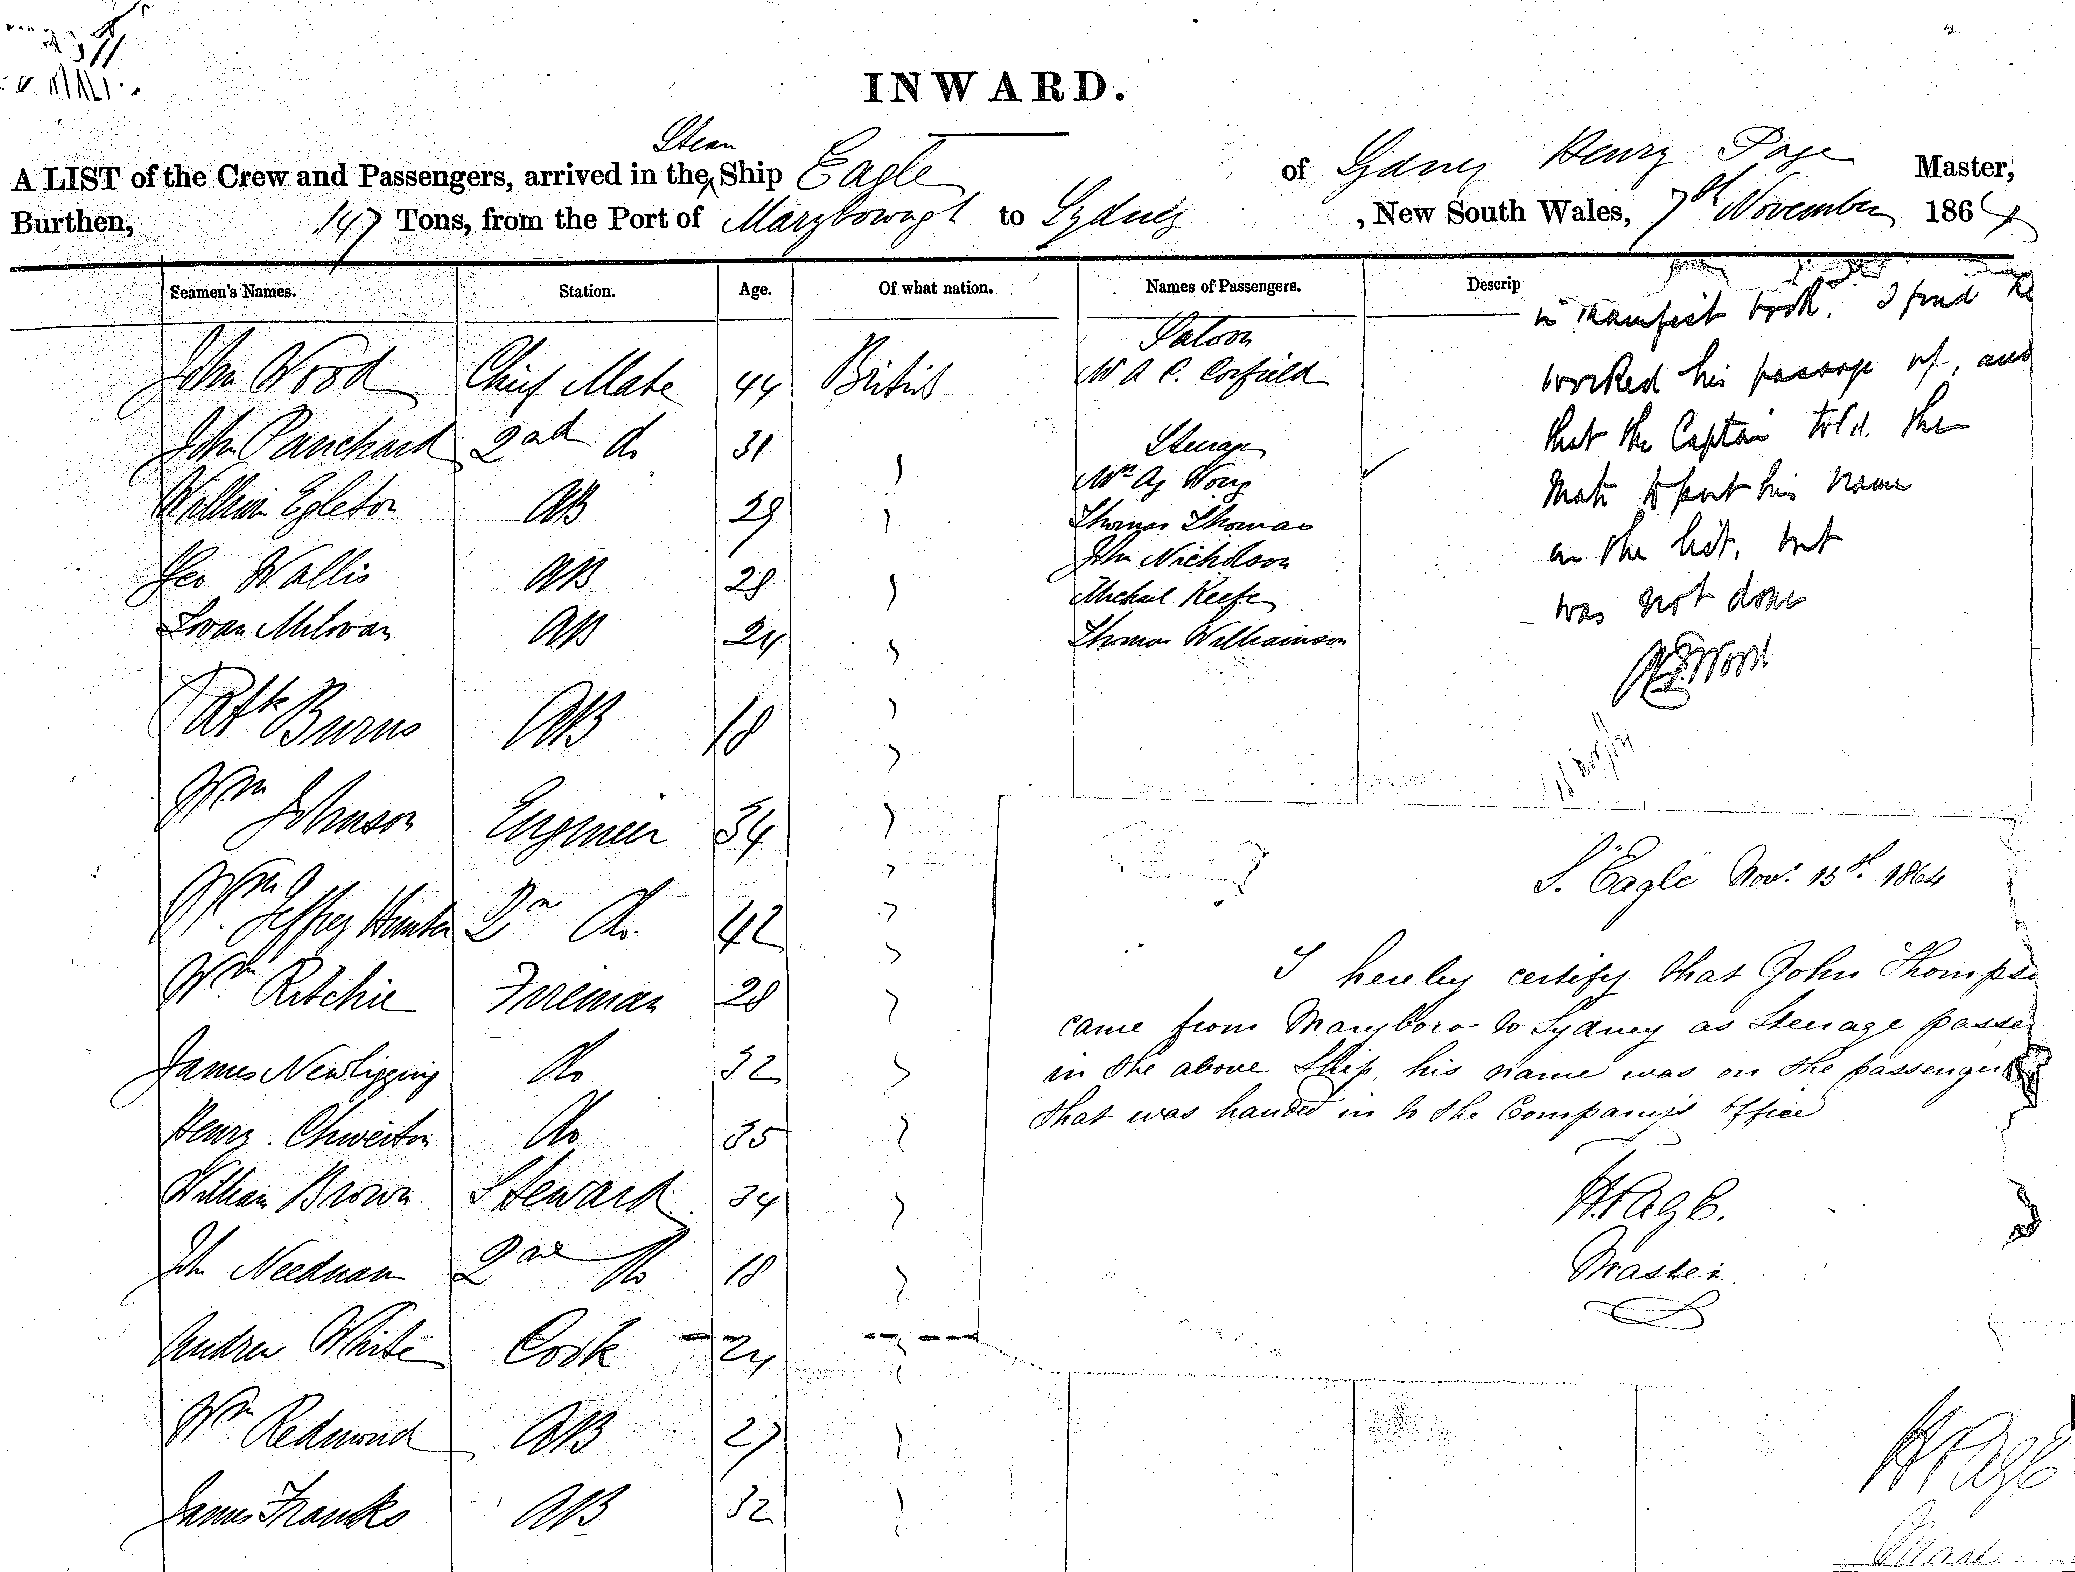 INWARD.
Steam
A LIST of the Crew and Passengers, arrived in the Ship Eagle of Sydney Henry Page Master,
Burthen, 147 Tons, from the Port of Maryborough to Sydney, New South Wales, 7th November 1864
Seamen's Names. Station. Age. Of what nation. Names of Passengers. Descrip
Saloon
John Wood Chief Mate 44 British W A C. Corfield
John Panchard 2nd do 31
Steerage
Mrs Ag Wong
William Egleton AB 29 Thomas Thomas
John Nicholson
Geo Wallis AB 28 Michael Keefe
AB 24 Thomas Williamson
Patk Burns AB 18
Wm Johnson Engineer 34
Wm Jeffrey Hunter 2nd Do. 42
Wm Ritchie Fireman 28
James Newbigging Do 32
Henry Do 35
William Brown Steward 34
Jn Neednam 2nd Do 18
Andrew White Cook 24
Wm Redmond AB 27
James Franks AB 32
in manifest book. I find he
worked his passage up, and
that the Captain told the
Mate to put his name
on the list, but
was not done
S. Eagle Nov. 15th. 1864
I hereby certify that John Thomps
came from Maryboro to Sydney as Steerage passe
in the above Ship, his name was on the passenger
that was handed in to the Company's office
H Page.
Master
H Page
Mast